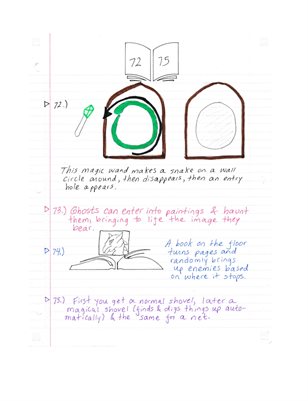 72 75
72.)
This magic wand makes a snake on a wall
circle around, then disappears, then an entry
hole appears.
73.) Ghosts can enter into paintings & haunt
them, bringing to life the image they
bear.
74.)
A book on the floor
turns pages and
randomly brings
up enemies based
on where it stops.
75.) First you get a normal shovel, later a
magical shovel (finds & digs things up auto-
matically) & the same for a net.